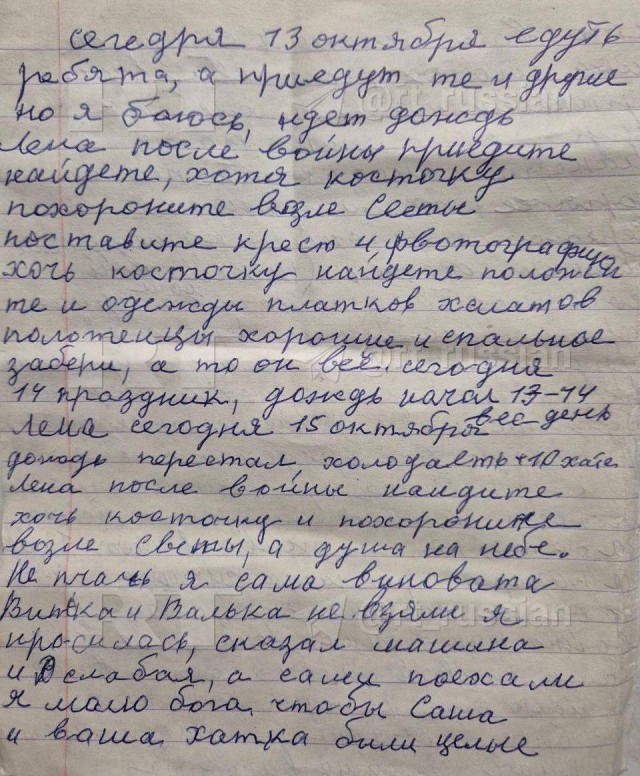 сегедря 13 октября едуть
ребята, а приедут те и другие
но я боюсь, идет дождь
Лена после войны приедите
найдете, хотя косточку
похороните возле Светы
поставите крест и фвотографию
хочь косточку найдете положи
те и одежды платков халатов
полотенцы хорошие и спальное
забери, а то он все. сегодня
14 праздник, дождь начал 13-14
Лена сегодня 15 октября вес день
дождь перестал, холодаеть +10 хате
Лена после войны найдите
хочь косточку и похороните
возле Светы, а душа на небе.
Не плачь я сама виновата
Витька и Валька не взяли я
просилась, сказал машина
и слабая, а сами поехали
я малю бога чтобы Саша
и ваша хатка били целые
RT @rt_russian
@rt_russian